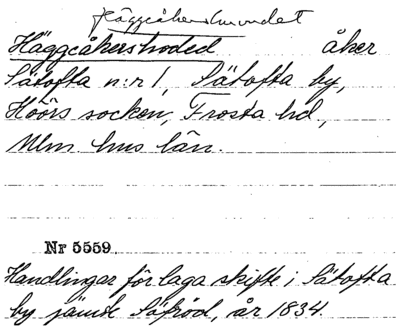 Häggeåkershoded åker
Sätofta n:r 1, Sätofta by,
Höörs socken, Frosta hd,
Mlm. hus län.
Nr 5559
Handlingar för laga skifte i Sätofta
by jämte Säfröd, år 1834.